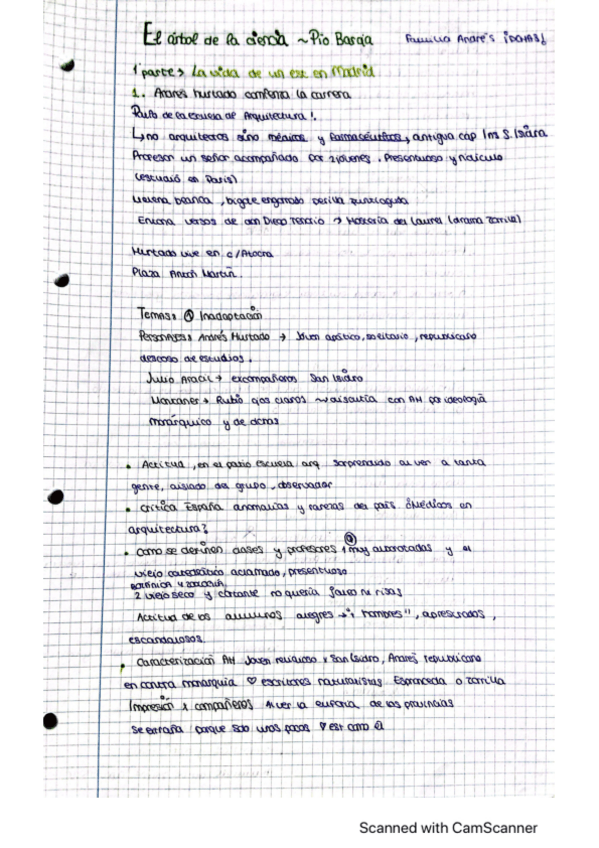 El árbol de la ciencia ~ Pío Baroja
Familia Andrés
1ª parte > La vida de un est en Madrid
1. Andrés Hurtado comienza la carrera
Patio de la escuela de Arquitectura
↳ no arquitectos sino médicos y farmacéuticos, antigua cap Ins S. Isidro
Profesor un señor acompañado por 2 jóvenes. Presentuoso y ridículo
(estudió en París)
Melena blanca, bigote engomado perilla puntiaguda
versos de don Diego Tenorio → Hostería del Laurel (drama Zorrilla)
Hurtado vive en c/Atocha
Plaza Antón Martín.
Temas: Inadaptación
Personajes: Andrés Hurtado → Joven apático, solitario, republicano
deseoso de estudios.
Julio Aracil → excompañeros San Isidro
Montaner → Rubio ojos claros ~ discutía con AH por ideología
monárquico y de
• Actitud, en el patio escuela arq sorprendido al ver a tanta
gente, aislado del grupo, observador
• Crítica España anomalías y rarezas del país ¿Médicos en
arquitectura?
• Como se definen clases y profesores 1 muy y el
viejo catedrático aclamado, presentuoso
botánica y zoología
2 viejo seco y cortante no quería jaleo ni risas
Actitud de los alumnos alegres → apresurados,
escandalosos.
• Caracterización AH Joven San Isidro, Andrés republicano
en contra monarquía ♡ escritores naturalistas Espronceda o Zorrilla
Impresión x compañeros al ver la euforia de los provincias
se extraña porque son unos pocos
Scanned with CamScanner